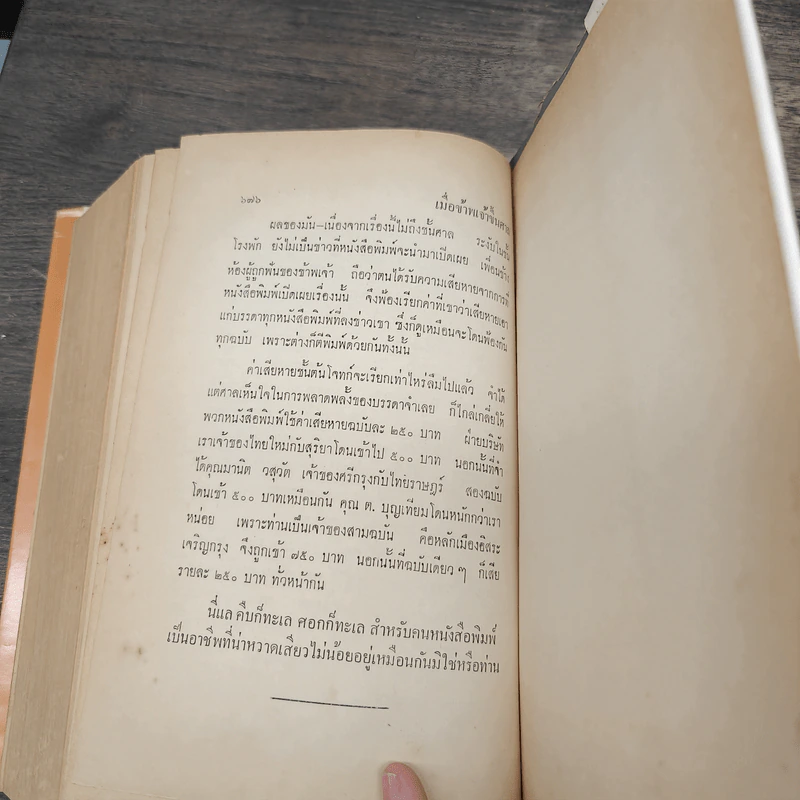 ๖๗๖
เมื่อข้าพเจ้าขึ้นศาล
ผลของมัน—เนื่องจากเรื่องนี้ไม่ถึงชั้นศาล ระงับในชั้น
โรงพัก ยังไม่เป็นข่าวที่หนังสือพิมพ์จะนำมาเปิดเผย เพื่อนข้าง
ห้องผู้ถูกฟันของข้าพเจ้า ถือว่าตนได้รับความเสียหายจากการที่
หนังสือพิมพ์เปิดเผยเรื่องนั้น จึงฟ้องเรียกค่าที่เขาว่าเสียหายเอา
แก่บรรดาทุกหนังสือพิมพ์ที่ลงข่าวเขา ซึ่งก็ดูเหมือนจะโดนฟ้องกัน
ทุกฉบับ เพราะต่างก็ตีพิมพ์ด้วยกันทั้งนั้น
ค่าเสียหายขั้นต้นโจทก์จะเรียกเท่าไหร่ลืมไปแล้ว จำได้
แต่ศาลเห็นใจในการพลาดพลั้งของบรรดาจำเลย ก็ไกล่เกลี่ยให้
พวกหนังสือพิมพ์ใช้ค่าเสียหายฉบับละ ๒๕๐ บาท ฝ่ายบริษัท
เราเจ้าของไทยใหม่กับสุริยาโดนเข้าไป ๕๐๐ บาท นอกนั้นที่จำ
ได้คุณมานิต วสุวัต เจ้าของศรีกรุงกับไทยราษฎร์ สองฉบับ
โดนเข้า ๕๐๐ บาทเหมือนกัน คุณ ต. บุญเทียมโดนหนักกว่าเรา
หน่อย เพราะท่านเป็นเจ้าของสามฉบับ คือหลักเมืองอิสระ
เจริญกรุง จึงถูกเข้า ๗๕๐ บาท นอกนั้นที่ฉบับเดียว ๆ ก็เสีย
รายละ ๒๕๐ บาท ทั่วหน้ากัน
นี่แล คืบก็ทะเล ศอกก็ทะเล สำหรับคนหนังสือพิมพ์
เป็นอาชีพที่น่าหวาดเสียวไม่น้อยอยู่เหมือนกันมิใช่หรือท่าน